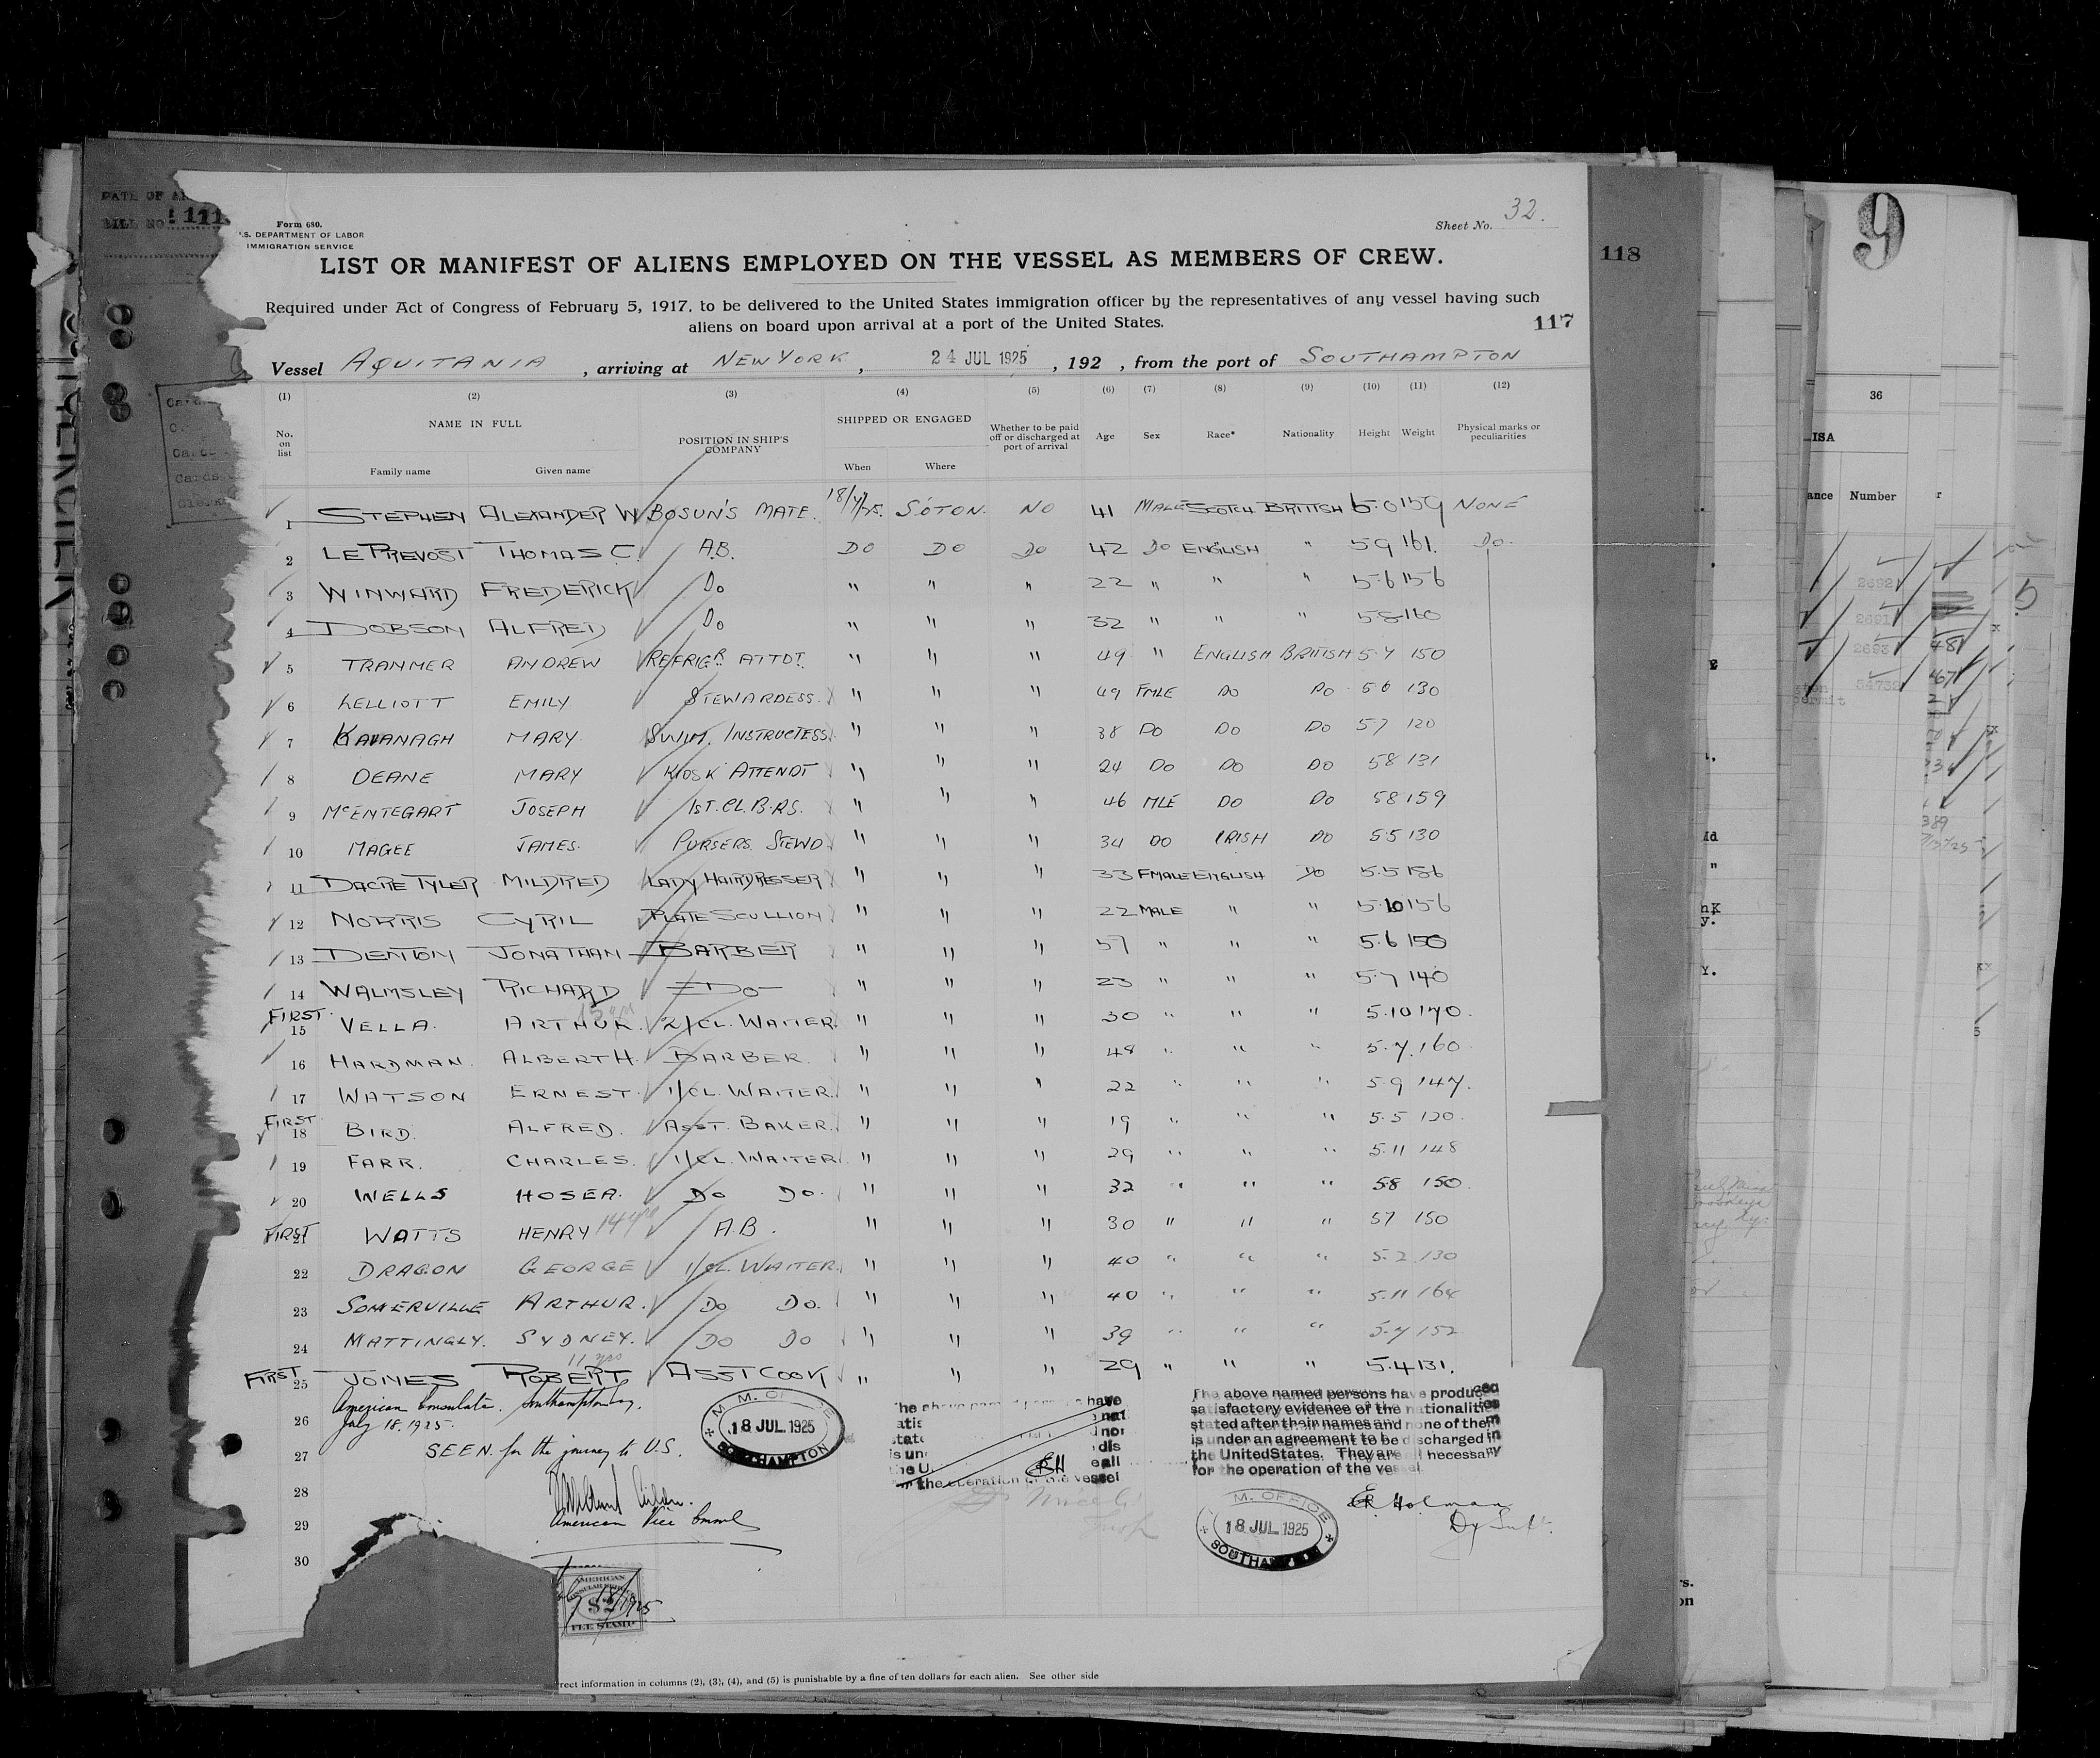 Sheet No. 32.
Form 680.
U.S. DEPARTMENT OF LABOR
IMMIGRATION SERVICE
LIST OR MANIFEST OF ALIENS EMPLOYED ON THE VESSEL AS MEMBERS OF CREW.
118
Required under Act of Congress of February 5, 1917, to be delivered to the United States immigration officer by the representatives of any vessel having such
aliens on board upon arrival at a port of the United States.
117
Vessel AQUITANIA , arriving at NEW YORK , 24 JUL 1925 , 192 , from the port of SOUTHAMPTON
(1) (2) (3) (4) (5) (6) (7) (8) (9) (10) (11) (12)
No. on list NAME IN FULL Family name Given name POSITION IN SHIP'S COMPANY SHIPPED OR ENGAGED When Where Whether to be paid off or discharged at port of arrival Age Sex Race* Nationality Height Weight Physical marks or peculiarities
1 STEPHEN ALEXANDER W BOSUN'S MATE. 18/7/25. S'OTON. NO 41 MALE SCOTCH BRITISH 5.0 159 NONE
2 LE PREVOST THOMAS C. A.B. DO DO DO 42 DO ENGLISH " 5 9 161. DO.
3 WINWARD FREDERICK DO " " " 22 " " " 5.6 156
4 DOBSON ALFRED DO " " " 32 " " " 5.8 160
5 TRANMER ANDREW REFRIGR ATTDT. " " " 49 " ENGLISH BRITISH 5.7 150
6 LELLIOTT EMILY STEWARDESS. " " " 49 FMLE DO DO 5 6 130
7 KAVANAGH MARY. SWIM. INSTRUCTESS. " " " 38 DO DO DO 5 7 120
8 DEANE MARY KIOSK ATTENDT " " " 24 DO DO DO 5 8 131
9 McENTEGART JOSEPH 1ST. CL. B.RS. " " " 46 MLE DO DO 5 8 159
10 MAGEE JAMES. PURSERS STEWD. " " " 34 DO IRISH DO 5.5 130
11 DACRE TYLER MILDRED LADY HAIRDRESSER " " " 33 FMALE ENGLISH DO 5.5 186
12 NORRIS CYRIL PLATE SCULLION " " " 22 MALE " " 5.10 156
13 DENTON JONATHAN BARBER " " " 57 " " " 5.6 150
14 WALMSLEY RICHARD DO " " " 23 " " " 5.7 140
FIRST 15 VELLA. ARTHUR. 2/CL. WAITER. " " " 30 " " " 5.10 170.
16 HARDMAN. ALBERT H. BARBER. " " " 48 " " " 5.7. 160
17 WATSON ERNEST. 1/CL. WAITER. " " " 22 " " " 5.9 147.
FIRST 18 BIRD. ALFRED. ASST. BAKER. " " " 19 " " " 5.5 120.
19 FARR. CHARLES. 1/CL. WAITER. " " " 29 " " " 5.11 148
20 WELLS HOSEA. DO DO. " " " 32 " " " 5.8 150.
FIRST 21 WATTS HENRY 14 yrs A.B. " " " 30 " " " 5 7 150
22 DRAGON GEORGE 1/CL. WAITER. " " " 40 " " " 5.2 130
23 SOMERVILLE ARTHUR. DO DO. " " " 40 " " " 5.11 164
24 MATTINGLY. SYDNEY. DO DO " " " 39 " " " 5.7 152
11 yrs
FIRST 25 JONES ROBERT ASST COOK " " " 29 " " " 5.4 131.
26
27
28
29
30
American Consulate. Southampton Eng.
July 18. 1925.
SEEN. for the journey to U.S.
American Vice Consul
18 JUL 1925
SOUTHAMPTON
The above named persons have produced
satisfactory evidence of the nationalities
stated after their names and none of them
is under an agreement to be discharged in
the United States. They are all necessary
for the operation of the vessel.
M. M. OFFICE
18 JUL 1925
SOUTHAMPTON
Holman
Dy Supt.
AMERICAN
CONSULAR SERVICE
$2
FEE STAMP
rect information in columns (2), (3), (4), and (5) is punishable by a fine of ten dollars for each alien. See other side
9
36
ISA
ance Number
2692
2691
2693
54732